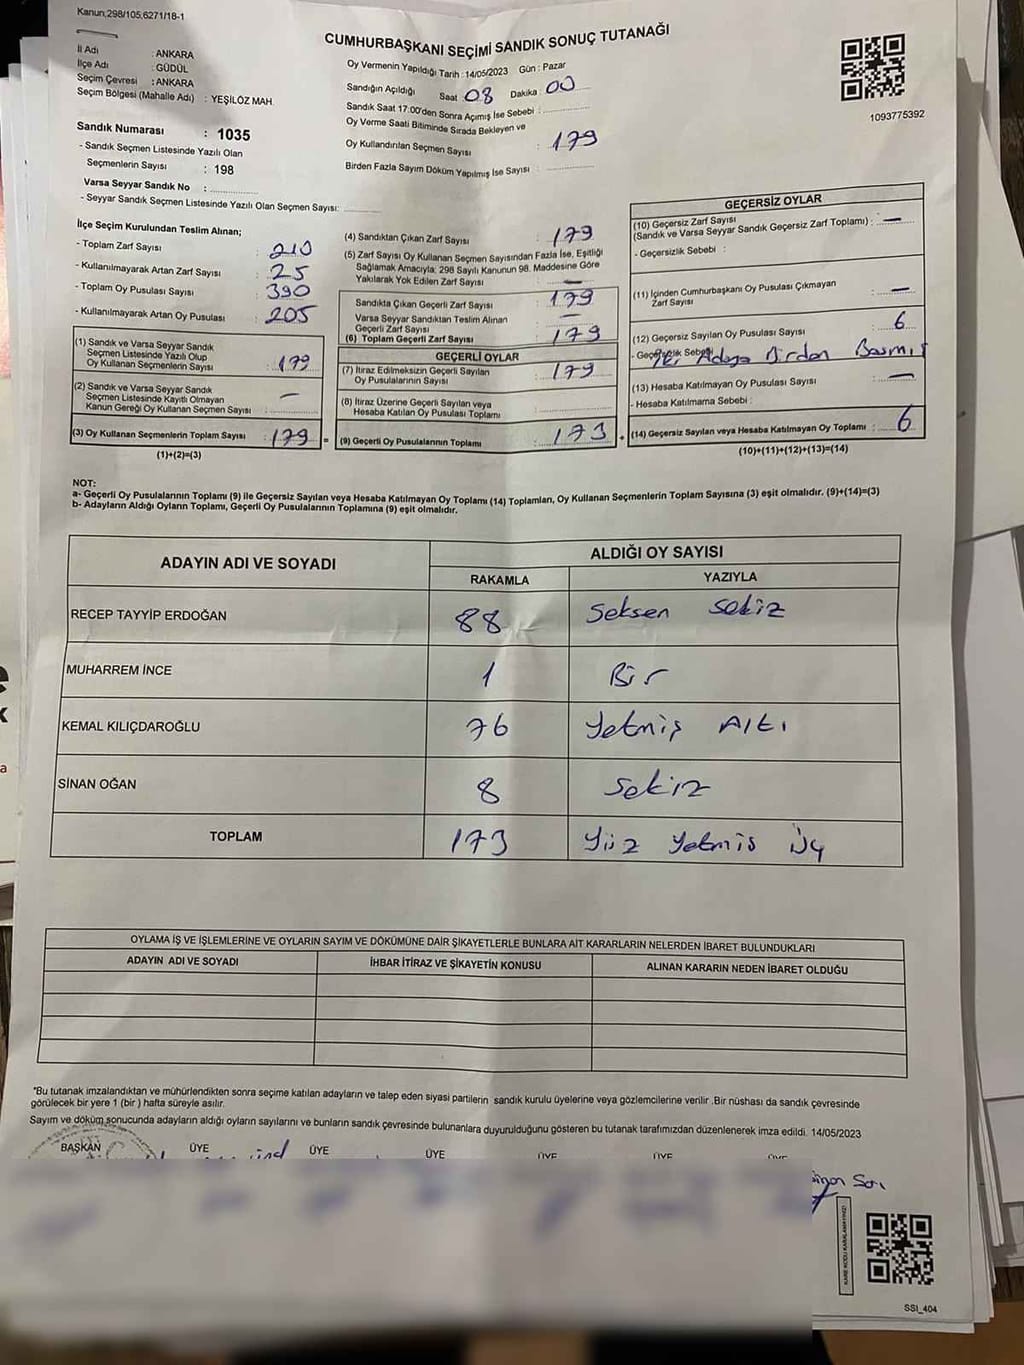 Kanun,298/105,6271/18-1
CUMHURBAŞKANI SEÇİMİ SANDIK SONUÇ TUTANAĞI
İl Adı : ANKARA
İlçe Adı : GÜDÜL
Seçim Çevresi : ANKARA
Seçim Bölgesi (Mahalle Adı) : YEŞİLÖZ MAH.
Sandık Numarası : 1035
- Sandık Seçmen Listesinde Yazılı Olan
Seçmenlerin Sayısı : 198
Varsa Seyyar Sandık No :
- Seyyar Sandık Seçmen Listesinde Yazılı Olan Seçmen Sayısı:
Oy Vermenin Yapıldığı Tarih :14/05/2023 Gün : Pazar
Sandığın Açıldığı Saat 08 Dakika 00
Sandık Saat 17:00'den Sonra Açımış İse Sebebi :
Oy Verme Saati Bitiminde Sırada Bekleyen ve
Oy Kullandırılan Seçmen Sayısı : 179
Birden Fazla Sayım Döküm Yapılmış İse Sayısı :
1093775392
İlçe Seçim Kurulundan Teslim Alınan;
- Toplam Zarf Sayısı : 210
- Kullanılmayarak Artan Zarf Sayısı : 25
- Toplam Oy Pusulası Sayısı : 390
- Kullanılmayarak Artan Oy Pusulası : 205
(1) Sandık ve Varsa Seyyar Sandık
Seçmen Listesinde Yazılı Olup
Oy Kullanan Seçmenlerin Sayısı : 179
(2) Sandık ve Varsa Seyyar Sandık
Seçmen Listesinde Kayıtlı Olmayan
Kanun Gereği Oy Kullanan Seçmen Sayısı : —
(3) Oy Kullanan Seçmenlerin Toplam Sayısı : 179 =
(1)+(2)=(3)
(4) Sandıktan Çıkan Zarf Sayısı : 179
(5) Zarf Sayısı Oy Kullanan Seçmen Sayısından Fazla İse, Eşitliği
Sağlamak Amacıyla; 298 Sayılı Kanunun 98. Maddesine Göre
Yakılarak Yok Edilen Zarf Sayısı : —
Sandıkta Çıkan Geçerli Zarf Sayısı : 179
Varsa Seyyar Sandıktan Teslim Alınan
Geçerli Zarf Sayısı : —
(6) Toplam Geçerli Zarf Sayısı : 179
GEÇERLİ OYLAR
(7) İtiraz Edilmeksizin Geçerli Sayılan
Oy Pusulalarının Sayısı : 179
(8) İtiraz Üzerine Geçerli Sayılan veya
Hesaba Katılan Oy Pusulası Toplamı :
(9) Geçerli Oy Pusulalarının Toplamı : 173 +
GEÇERSİZ OYLAR
(10) Geçersiz Zarf Sayısı
(Sandık ve Varsa Seyyar Sandık Geçersiz Zarf Toplamı) : —
- Geçersizlik Sebebi :
(11) İçinden Cumhurbaşkanı Oy Pusulası Çıkmayan
Zarf Sayısı : —
(12) Geçersiz Sayılan Oy Pusulası Sayısı : 6
- Geçersizlik Sebebi İki Adaya Birden Basmış
(13) Hesaba Katılmayan Oy Pusulası Sayısı : —
- Hesaba Katılmama Sebebi :
(14) Geçersiz Sayılan veya Hesaba Katılmayan Oy Toplamı : 6
(10)+(11)+(12)+(13)=(14)
NOT:
a- Geçerli Oy Pusulalarının Toplamı (9) ile Geçersiz Sayılan veya Hesaba Katılmayan Oy Toplamı (14) Toplamları, Oy Kullanan Seçmenlerin Toplam Sayısına (3) eşit olmalıdır. (9)+(14)=(3)
b- Adayların Aldığı Oyların Toplamı, Geçerli Oy Pusulalarının Toplamına (9) eşit olmalıdır.
ADAYIN ADI VE SOYADI
ALDIĞI OY SAYISI
RAKAMLA YAZIYLA
RECEP TAYYİP ERDOĞAN 88 Seksen Sekiz
MUHARREM İNCE 1 Bir
KEMAL KILIÇDAROĞLU 76 Yetmiş Altı
SİNAN OĞAN 8 Sekiz
TOPLAM 173 Yüz Yetmis Üç
OYLAMA İŞ VE İŞLEMLERİNE VE OYLARIN SAYIM VE DÖKÜMÜNE DAİR ŞİKAYETLERLE BUNLARA AİT KARARLARIN NELERDEN İBARET BULUNDUKLARI
ADAYIN ADI VE SOYADI İHBAR İTİRAZ VE ŞİKAYETİN KONUSU ALINAN KARARIN NEDEN İBARET OLDUĞU
*Bu tutanak imzalandıktan ve mühürlendikten sonra seçime katılan adayların ve talep eden siyasi partilerin sandık kurulu üyelerine veya gözlemcilerine verilir .Bir nüshası da sandık çevresinde
görülecek bir yere 1 (bir ) hafta süreyle asılır.
Sayım ve döküm sonucunda adayların aldığı oyların sayılarını ve bunların sandık çevresinde bulunanlara duyurulduğunu gösteren bu tutanak tarafımızdan düzenlenerek imza edildi. 14/05/2023
BAŞKAN ÜYE ÜYE ÜYE ÜYE ÜYE ÜYE
KARE KODU KARALAMAYINIZ!
SSI_404